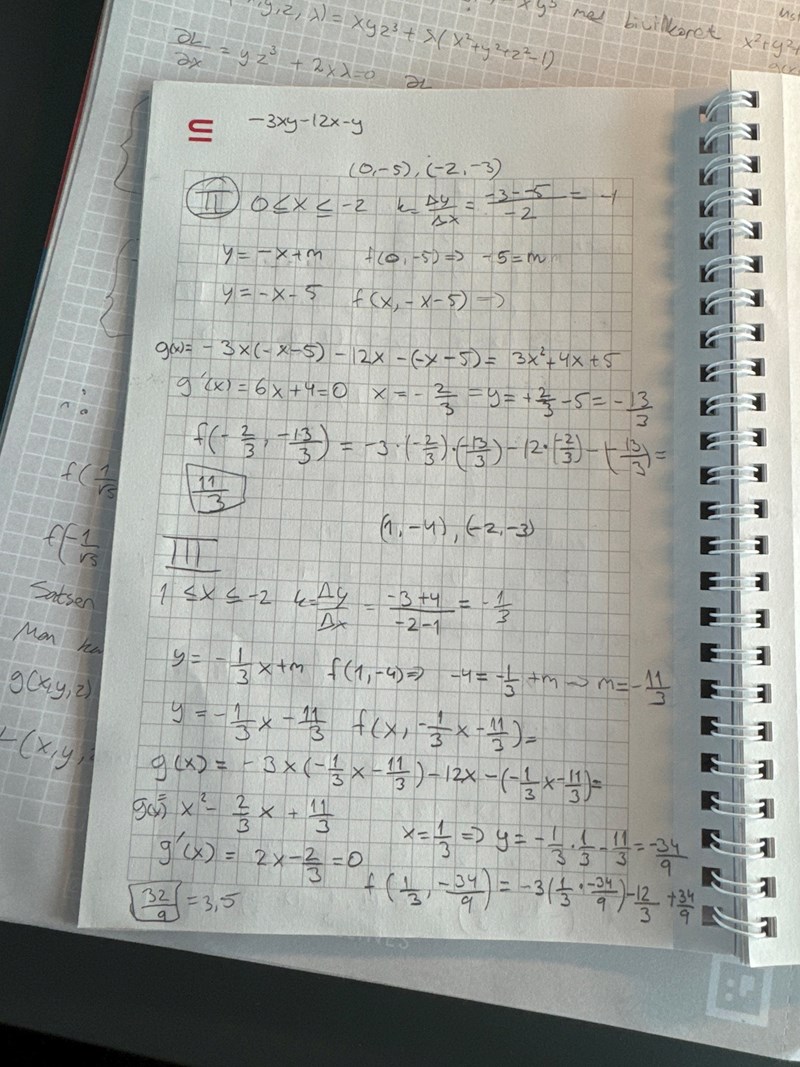 y,z,λ) = xyz³ + λ(x²+y²+z²-1)
med bivillkoret x²+y²+
∂L/∂x = yz³ + 2xλ=0 ∂L
-3xy-12x-y
(0,-5), (-2,-3)
II 0≤x≤-2 k=Δy/Δx = -3--5/-2 = -1
y=-x+m f(0,-5)=> -5=m
y=-x-5 f(x,-x-5)=>
g(x)= -3x(-x-5)-12x-(-x-5)= 3x²+4x+5
g'(x)=6x+4=0 x=-2/3 =y=+2/3-5=-13/3
f(-2/3, -13/3) = -3·(-2/3)·(-13/3)-12·(-2/3)-(-13/3)=
11/3
(1,-4), (-2,-3)
III
1≤x≤-2 k=Δy/Δx = -3+4/-2-1 = -1/3
y=-1/3x+m f(1,-4)=> -4=-1/3+m -> m=-11/3
y=-1/3x-11/3 f(x,-1/3x-11/3)=
g(x) = -3x(-1/3x-11/3)-12x-(-1/3x-11/3)=
g(x)= x²-2/3x+11/3
x=1/3 => y=-1/3·1/3-11/3=-34/9
g'(x) = 2x-2/3=0
f(1/3, -34/9) = -3(1/3·-34/9)-12/3+34/9
32/9 = 3,5
f(1/√5
f(-1/√5
Satsen
Man
g(x,y,z)
(x,y,